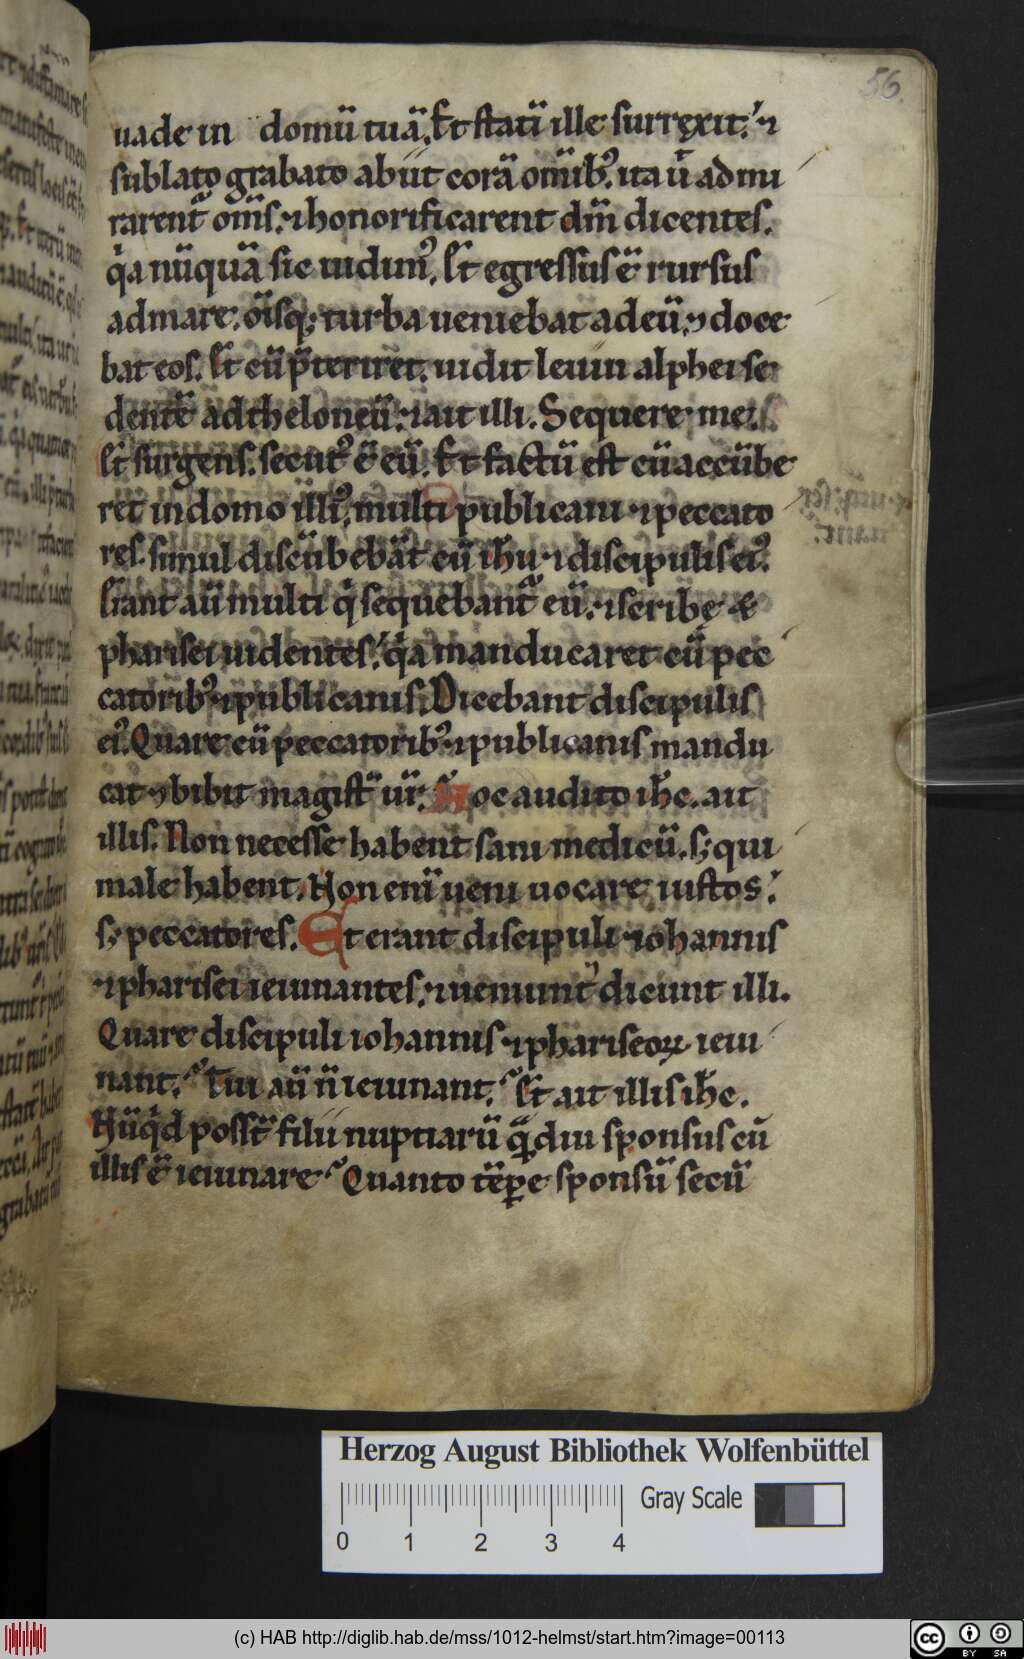 56.
uade in domū tuā. Et statī ille surrexit. ⁊
sublato grabato abiit corā omīb⁹. ita ut admi
rarent᷑ om̄s. ⁊ honorificarent dm̄ dicentes.
qͥa nūquā sic uidim⁹. Et egressus ē rursus
ad mare. oīsq; turba ueniebat ad eū. ⁊ doce
bat eos. Et cū p̄teriret. uidit leuin alphei se
dentē ad theloneū. ⁊ ait illi. Sequere me.
Et surgens. secut⁹ ē eū. Et factū est cū accūbe
ret in domo illi⁹. multi publicani ⁊ peccato
res. simul discūbebāt cū ih̄u ⁊ discipulis ei⁹.
Erant aū multi qͥ sequebant᷑ eū. ⁊ scribę &
pharisei uidentes. qͥa manducaret cū pec
catorib⁹ ⁊ publicanis. Dicebant discipulis
ei⁹. Quare cū peccatorib⁹ ⁊ publicanis mandu
cat ⁊ bibit magist̄ ur̄. Hoc audito ih̄c. ait
illis. Non necesse habent sani medicū. s; qui
male habent. Non enī ueni uocare iustos.
s; peccatores. Et erant discipuli iohannis
⁊ pharisei ieiunantes. ⁊ ueniunt ⁊ dicunt illi.
Quare discipuli iohannis ⁊ phariseoꝝ ieiu
nant. Tui aū n̄ ieiunant. Et ait illis ih̄c.
Nūqͥd poss̄t filii nuptiarū qᷓdiu sponsus cū
illis ē ieiunare. Quanto tēꝑe sponsū secū
Herzog August Bibliothek Wolfenbüttel
0 1 2 3 4
Gray Scale
(c) HAB http://diglib.hab.de/mss/1012-helmst/start.htm?image=00113
cc BY SA